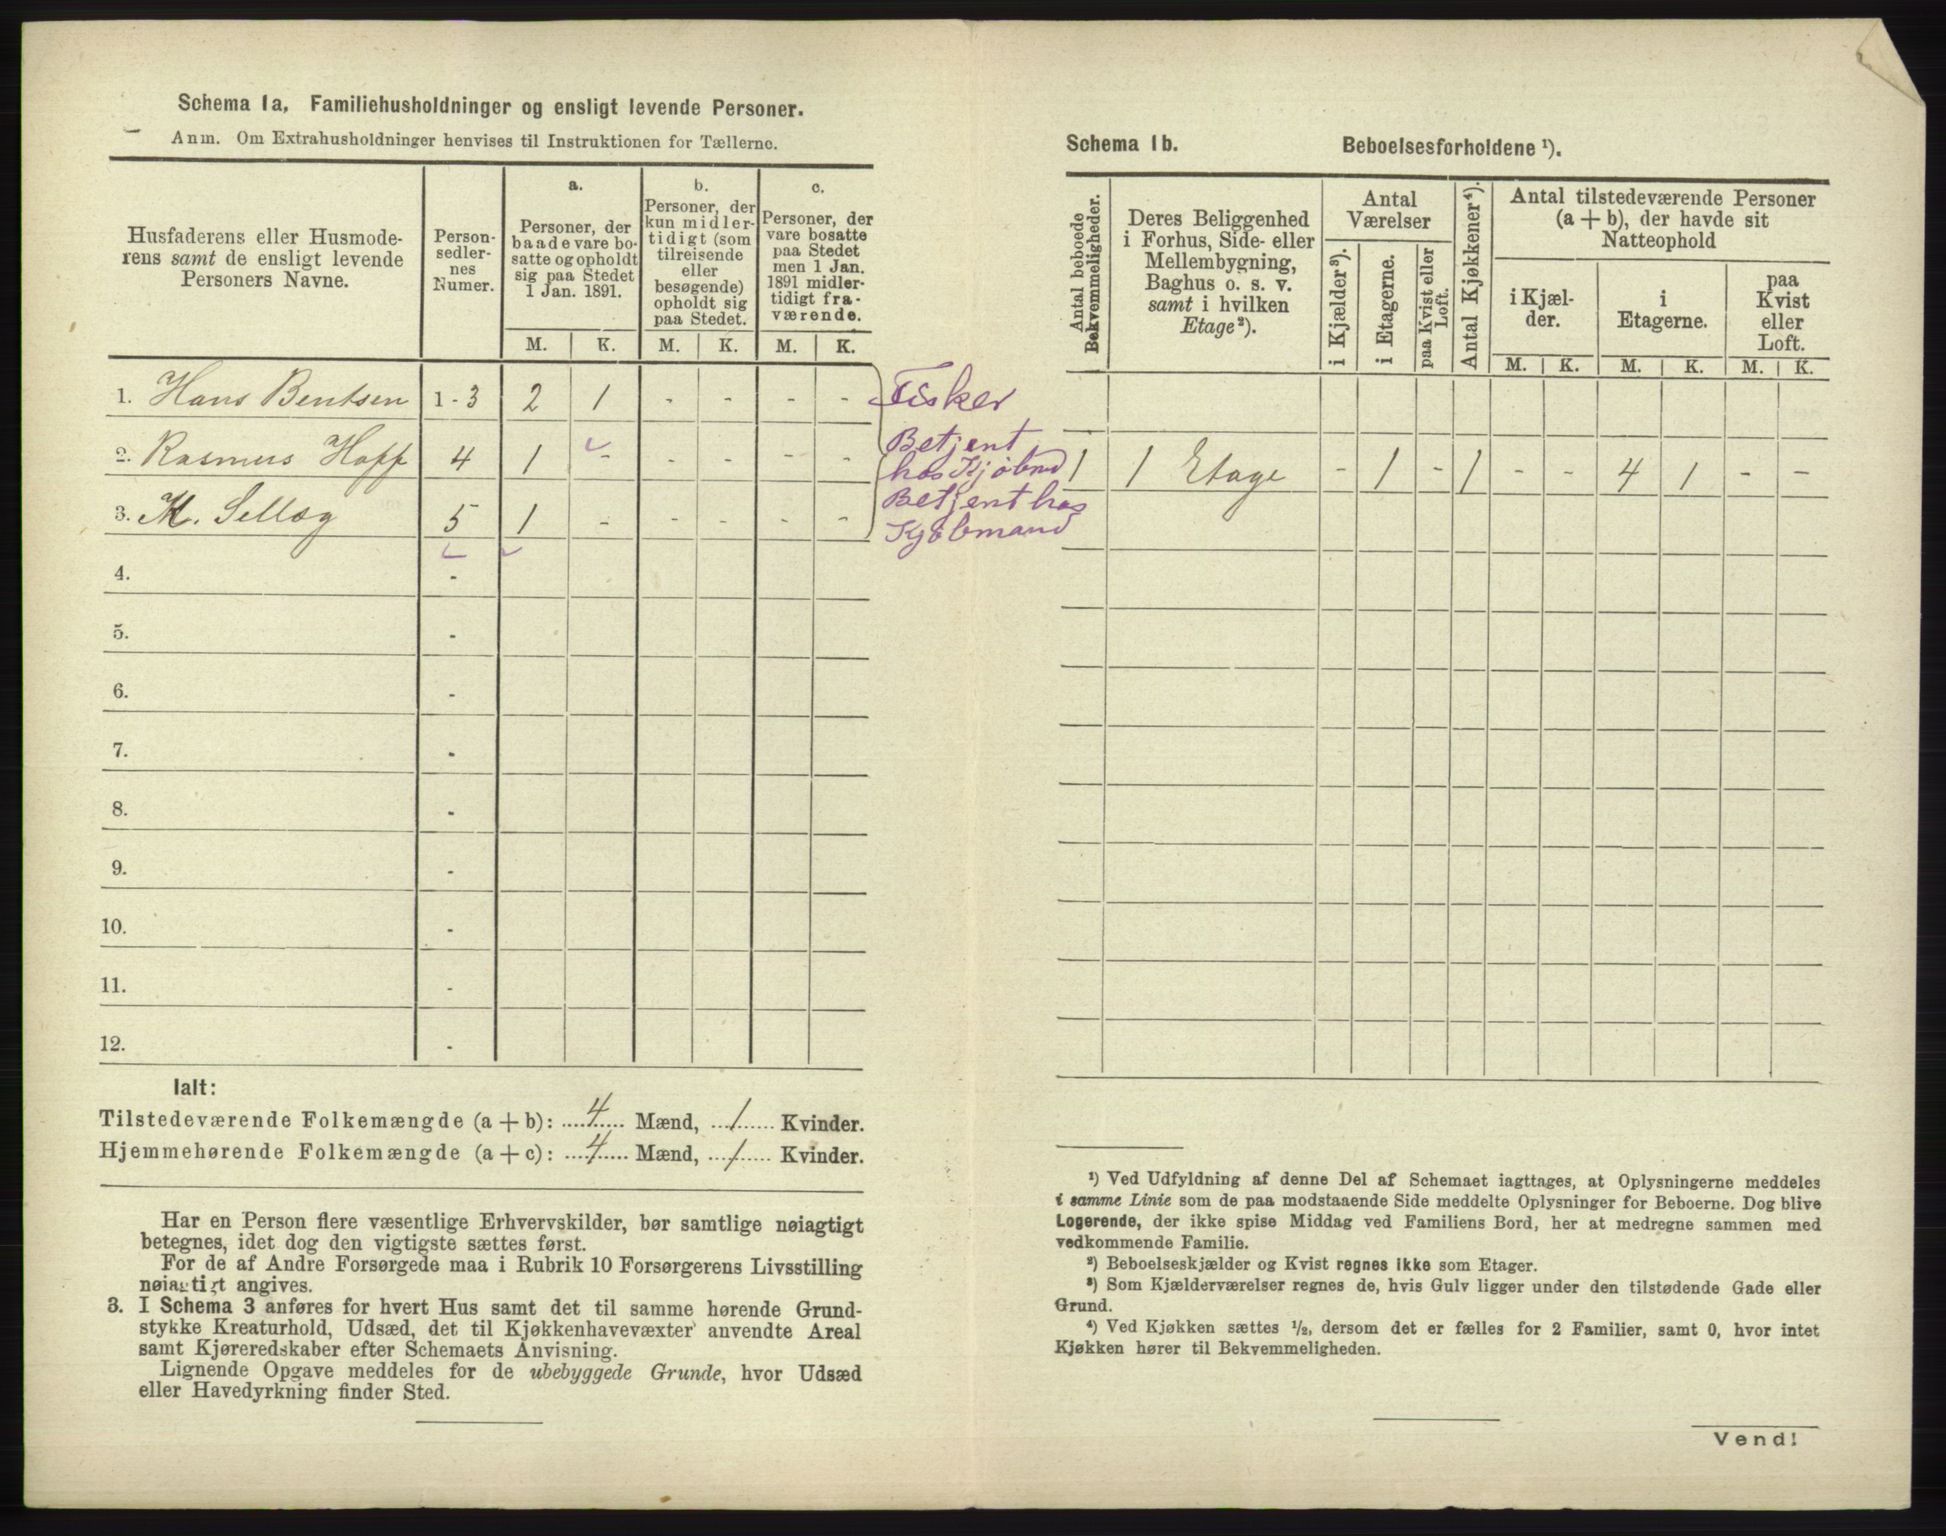 Schema 1a. Familiehusholdninger og ensligt levende Personer.
Anm. Om Extrahusholdninger henvises til Instruktionen for Tællerne.
Husfaderens eller Husmode-
rens samt de ensligt levende
Personers Navne.
Person-
sedler-
nes
Numer.
a.
Personer, der
baade vare bo-
satte og opholdt
sig paa Stedet
1 Jan. 1891.
b.
Personer, der
kun midler-
tidigt (som
tilreisende
eller
besøgende)
opholdt sig
paa Stedet.
c.
Personer, der
vare bosatte
paa Stedet
men 1 Jan.
1891 midler-
tidigt fra-
værende.
M. K. M. K. M. K.
1. Hans Bentsen 1-3 2 1 - - - - Fisker
2. Rasmus Hoff 4 1 - - - - - Betjent
hos Kjøbmd
3. M. Sellæg 5 1 - - - - - Betjent hos
Kjøbmand
4. -
5. -
6. -
7. -
8. -
9. -
10. -
11. -
12. -
Ialt:
Tilstedeværende Folkemængde (a + b): 4 Mænd, 1 Kvinder.
Hjemmehørende Folkemængde (a + c): 4 Mænd, 1 Kvinder.
Har en Person flere væsentlige Erhvervskilder, bør samtlige nøiagtigt
betegnes, idet dog den vigtigste sættes først.
For de af Andre Forsørgede maa i Rubrik 10 Forsørgerens Livsstilling
nøiagtigt angives.
3. I Schema 3 anføres for hvert Hus samt det til samme hørende Grund-
stykke Kreaturhold, Udsæd, det til Kjøkkenhavevæxter anvendte Areal
samt Kjøreredskaber efter Schemaets Anvisning.
Lignende Opgave meddeles for de ubebyggede Grunde, hvor Udsæd
eller Havedyrkning finder Sted.
Schema 1b. Beboelsesforholdene ¹).
Antal beboede
Bekvemmeligheder.
Deres Beliggenhed
i Forhus, Side- eller
Mellembygning,
Baghus o. s. v.
samt i hvilken
Etage ²).
Antal
Værelser
i Kjælder ³).
i Etagerne.
paa Kvist eller
Loft.
Antal Kjøkkener ⁴).
Antal tilstedeværende Personer
(a + b), der havde sit
Natteophold
i Kjæl-
der.
i
Etagerne.
paa
Kvist
eller
Loft.
M. K. M. K. M. K.
1 1 Etage - 1 - 1 - - 4 1 - -
¹) Ved Udfyldning af denne Del af Schemaet iagttages, at Oplysningerne meddeles
i samme Linie som de paa modstaaende Side meddelte Oplysninger for Beboerne. Dog blive
Logerende, der ikke spise Middag ved Familiens Bord, her at medregne sammen med
vedkommende Familie.
²) Beboelseskjælder og Kvist regnes ikke som Etager.
³) Som Kjælderværelser regnes de, hvis Gulv ligger under den tilstødende Gade eller
Grund.
⁴) Ved Kjøkken sættes ½, dersom det er fælles for 2 Familier, samt 0, hvor intet
Kjøkken hører til Bekvemmeligheden.
Vend!